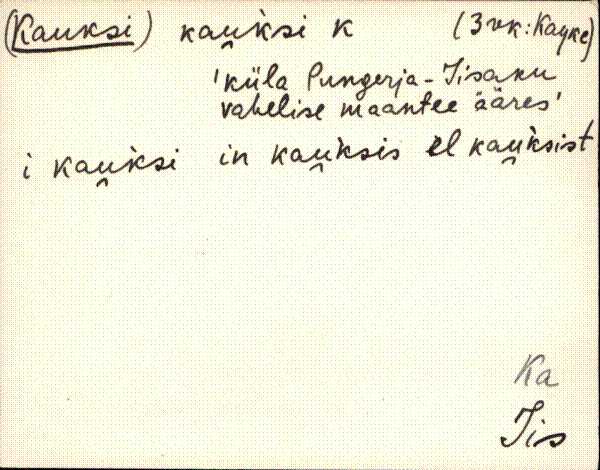 (Kauksi) kau̯ksi k (3vk: Kayke)
'küla Pungerja-Iisaku
vahelise maantee ääres'
i kau̯ksi in kau̯ksis el kau̯ksist
Ka
Iis